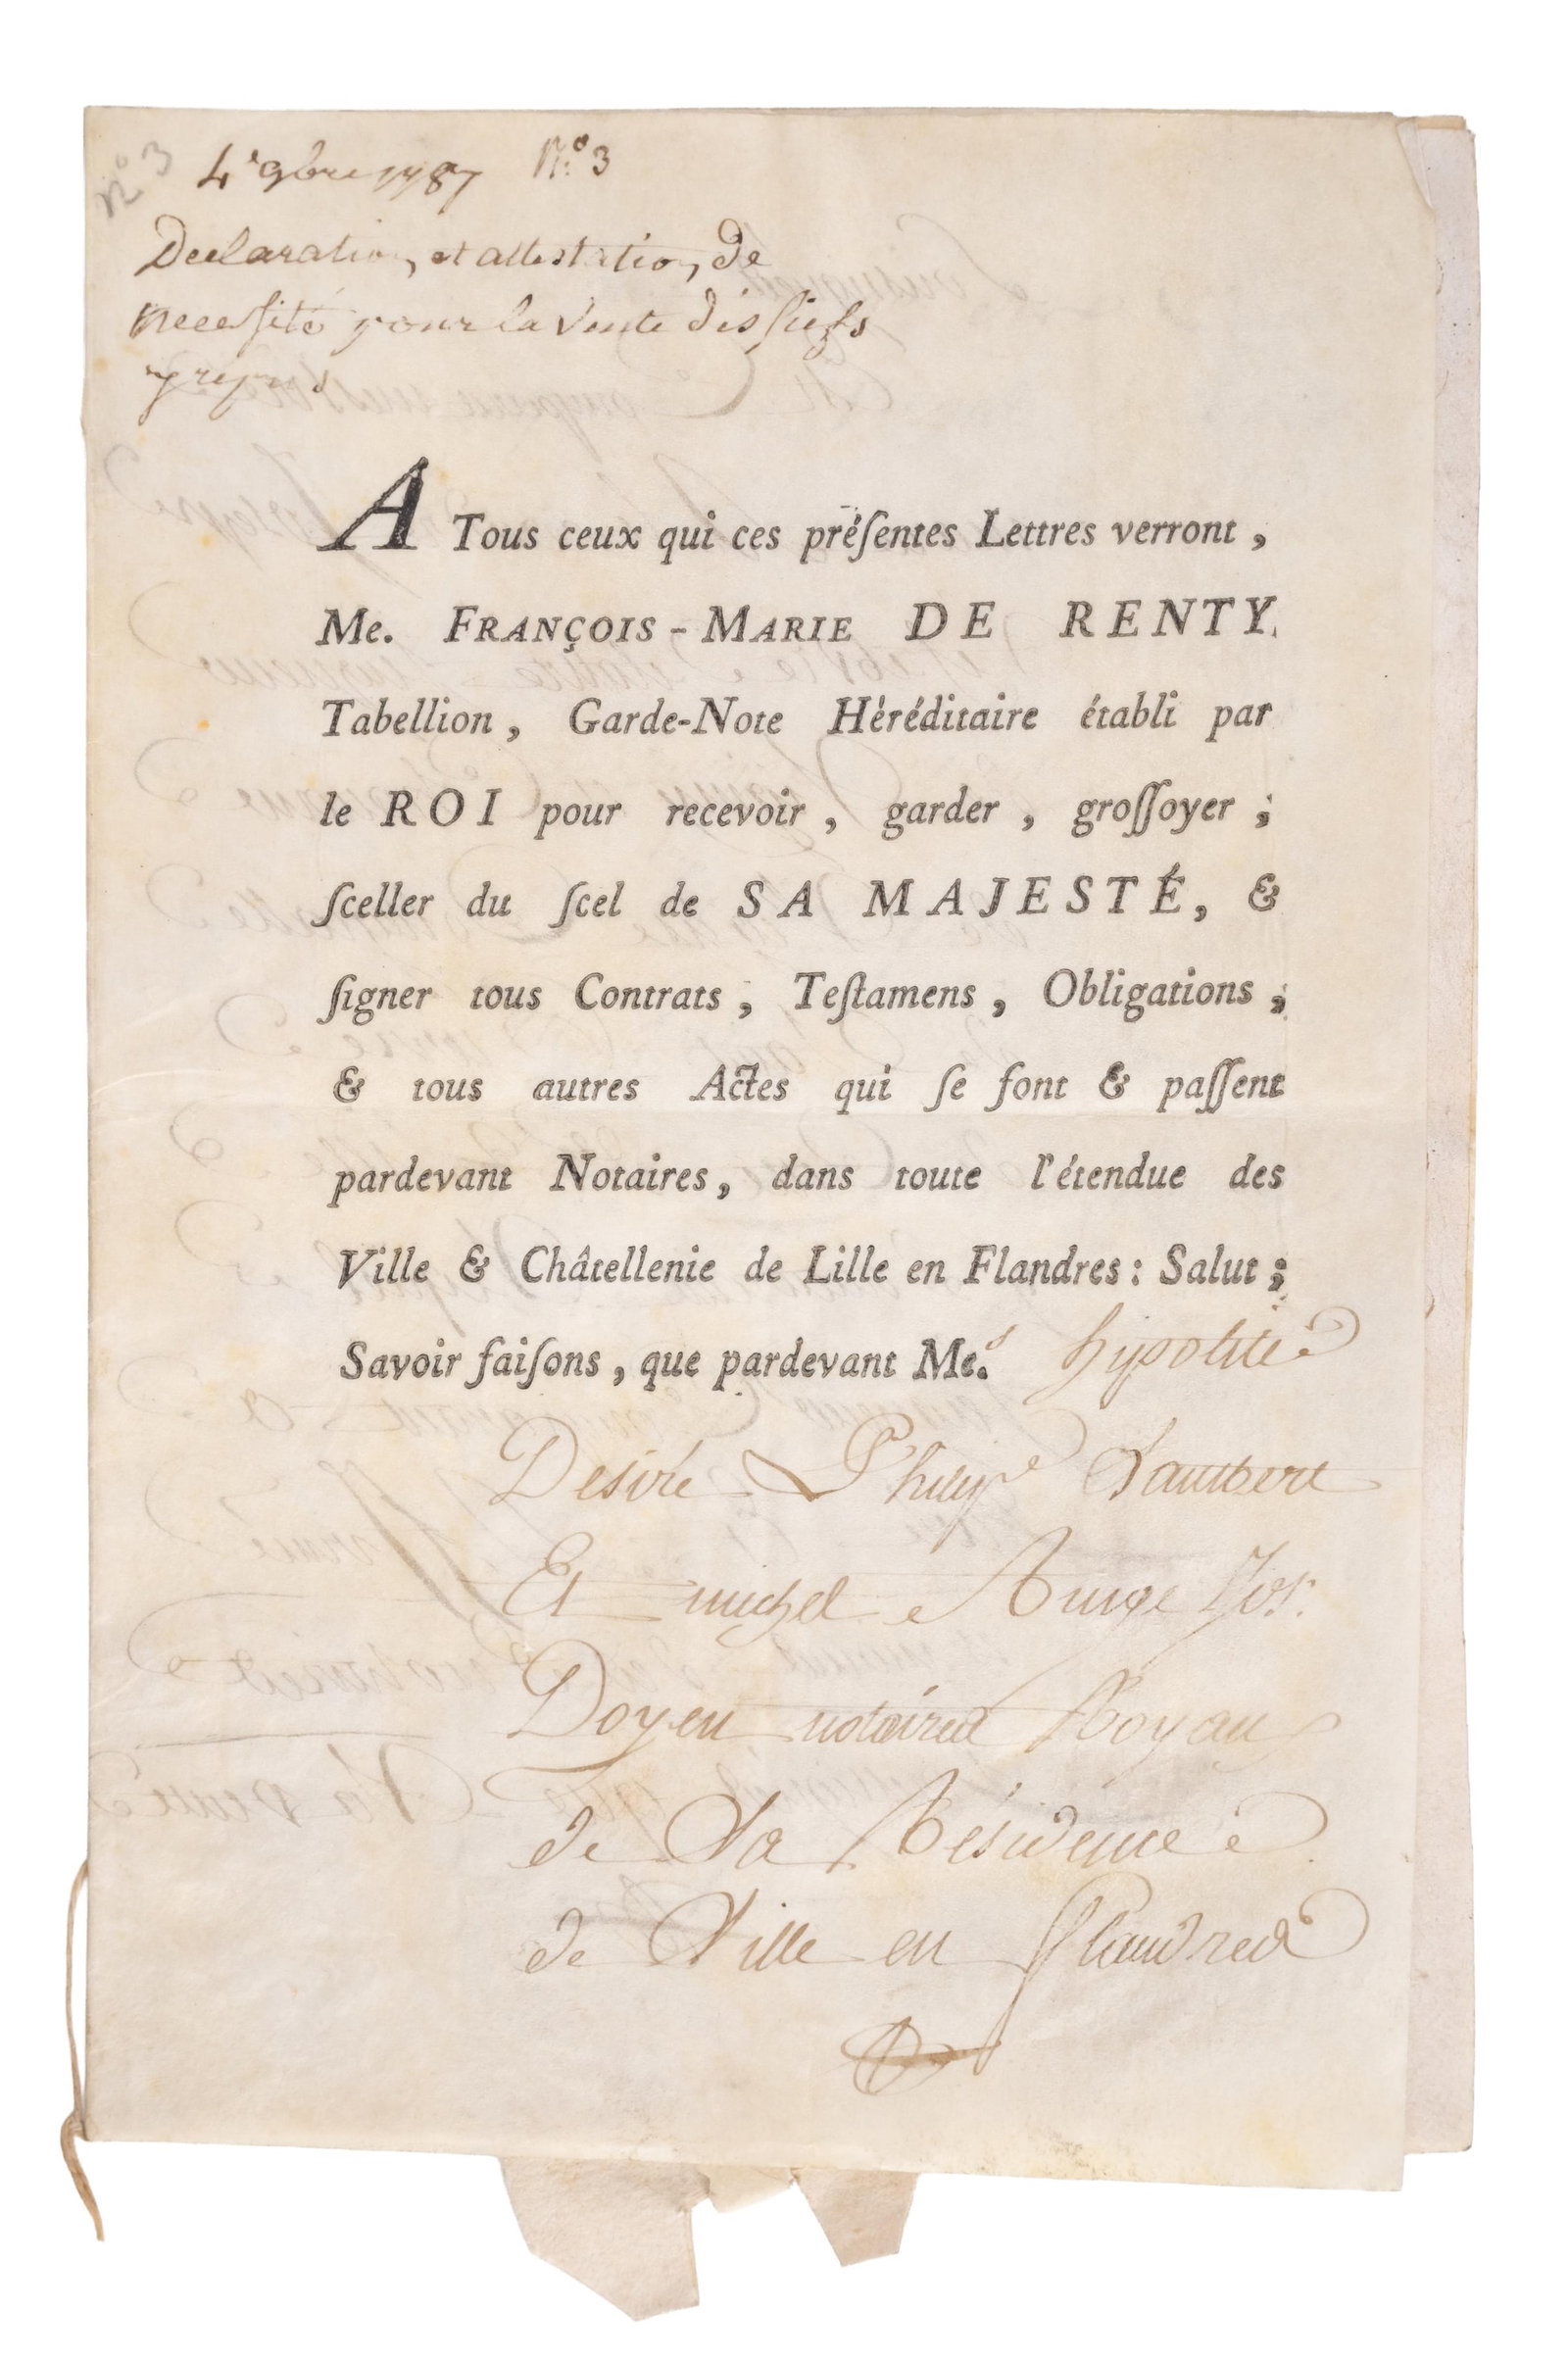 N.o 3
4.e 9bre 1787 N.o 3
Declaration, et attestation, de
necessité pour la vente des fiefs
y repris
A Tous ceux qui ces préſentes Lettres verront,
Me. FRANÇOIS-MARIE DE RENTY,
Tabellion, Garde-Note Héréditaire établi par
le ROI pour recevoir, garder, groſſoyer;
ſceller du ſcel de SA MAJESTÉ, &
ſigner tous Contrats, Teſtamens, Obligations;
& tous autres Actes qui ſe font & paſſent
pardevant Notaires, dans toute l'étendue des
Ville & Châtellenie de Lille en Flandres: Salut;
Savoir faiſons, que pardevant Me.s hypolite
Desiré Philipe
Et michel Ange Jos.
Doyen notaires Royau
de La Résidence
de Lille en flandres